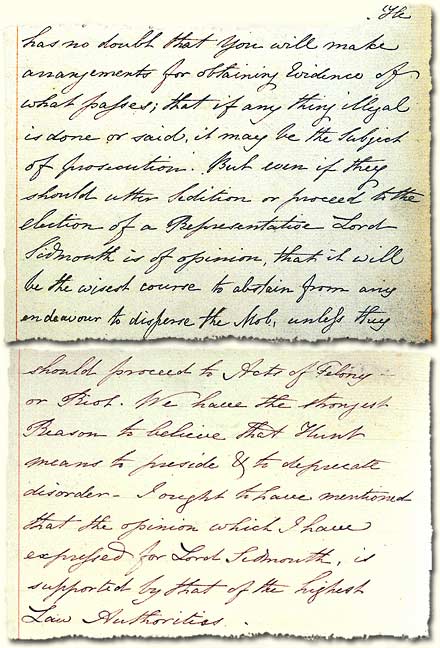 He
has no doubt that You will make
arrangements for obtaining Evidence of
what passes; that if any thing illegal
is done or said, it may be the Subject
of prosecution. But even if they
should utter Sedition or proceed to the
election of a Representative Lord
Sidmouth is of opinion, that it will
be the wisest course to abstain from any
endeavour to disperse the Mob, unless they
should proceed to Acts of Felony
or Riot. We have the strongest
Reason to believe that Hunt
means to preside & to deprecate
disorder – I ought to have mentioned
that the opinion which I have
expressed for Lord Sidmouth, is
supported by that of the highest
Law Authorities.